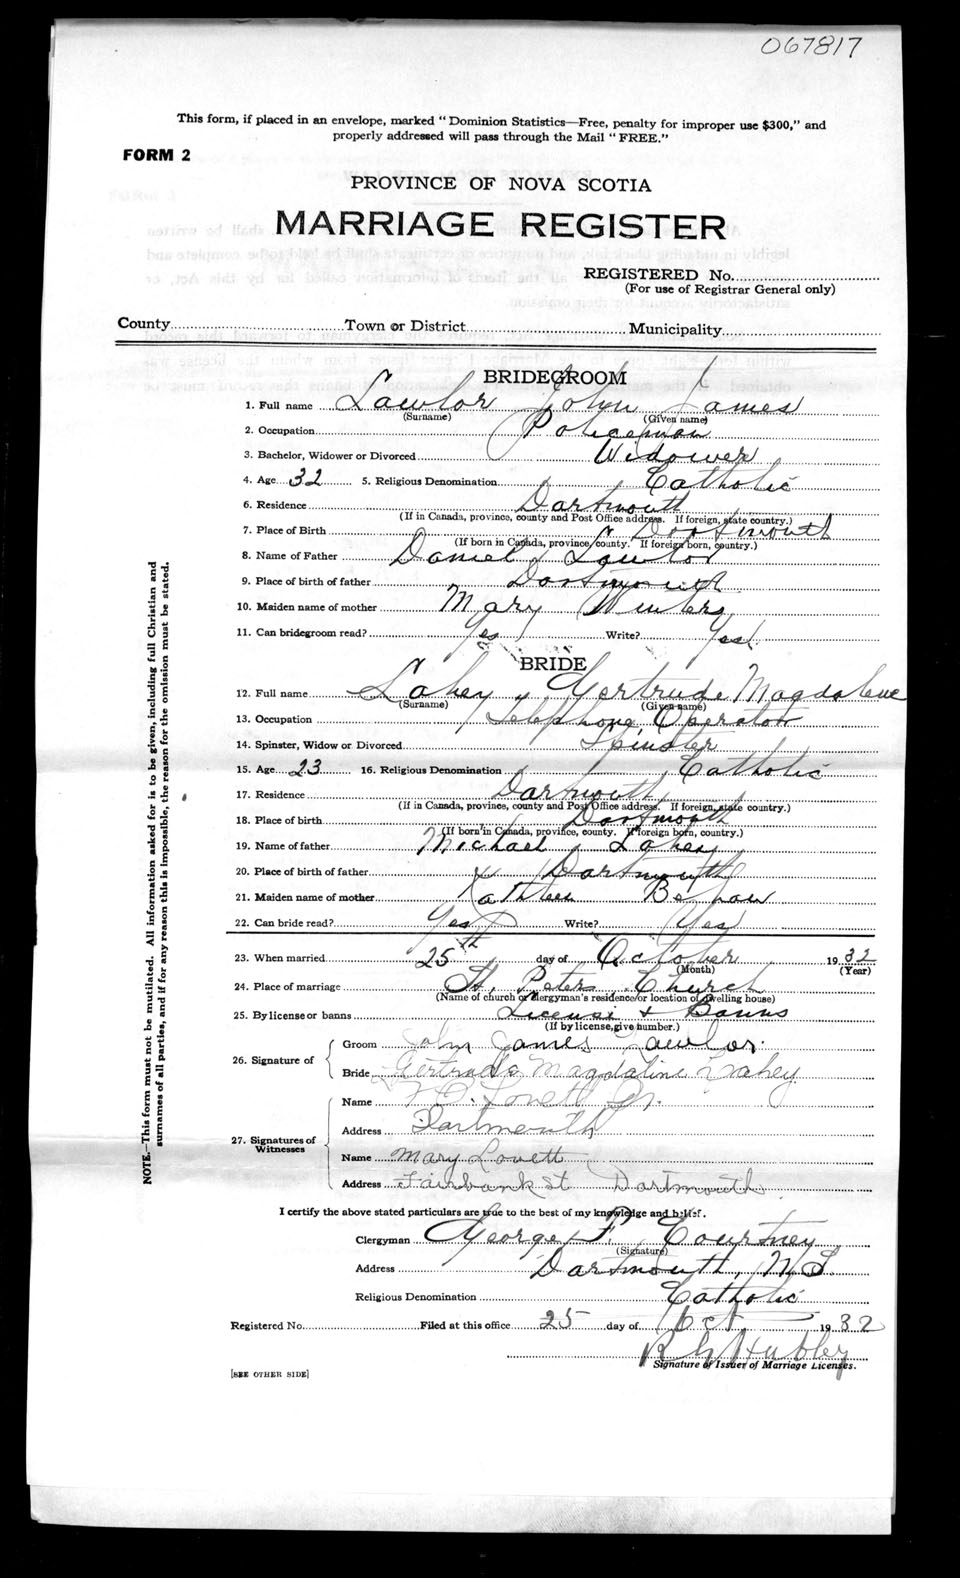 067817
This form, if placed in an envelope, marked "Dominion Statistics—Free, penalty for improper use $300," and
properly addressed will pass through the Mail "FREE."
FORM 2
PROVINCE OF NOVA SCOTIA
MARRIAGE REGISTER
REGISTERED No.
(For use of Registrar General only)
County Town or District Municipality
BRIDEGROOM
1. Full name Lawlor John James
(Surname) (Given name)
2. Occupation Policeman
3. Bachelor, Widower or Divorced Widower
4. Age 32 5. Religious Denomination Catholic
6. Residence Dartmouth
(If in Canada, province, county and Post Office address. If foreign, state country.)
7. Place of Birth Dartmouth
(If born in Canada, province, county. If foreign born, country.)
8. Name of Father Daniel Lawlor
9. Place of birth of father Dartmouth
10. Maiden name of mother Mary Winters
11. Can bridegroom read? Yes Write? Yes
BRIDE
12. Full name Lahey, Gertrude Magdalene
(Surname) (Given name)
13. Occupation Telephone Operator
14. Spinster, Widow or Divorced Spinster
15. Age 23 16. Religious Denomination Catholic
17. Residence Dartmouth
(If in Canada, province, county and Post Office address. If foreign, state country.)
18. Place of birth Dartmouth
(If born in Canada, province, county. If foreign born, country.)
19. Name of father Michael Lahey
20. Place of birth of father Dartmouth
21. Maiden name of mother Kathleen
22. Can bride read? Yes Write? Yes
23. When married 25th day of October 1932
(Month) (Year)
24. Place of marriage St. Peters Church
(Name of church or clergyman's residence/or location of dwelling house)
25. By license or banns License & Banns
(If by license, give number.)
26. Signature of
Groom John James Lawlor.
Bride Gertrude Magdaline Lahey
27. Signatures of Witnesses
Name Lovett Jr.
Address Dartmouth
Name Mary Lovett
Address Fairbank St Dartmouth.
I certify the above stated particulars are true to the best of my knowledge and belief.
Clergyman George P. Courtney
(Signature)
Address Dartmouth, N.S.
Religious Denomination Catholic
Registered No. Filed at this office 25 day of Oct. 1932
Hubley
Signature of Issuer of Marriage Licenses.
[SEE OTHER SIDE]
NOTE.—This form must not be mutilated. All information asked for is to be given, including full Christian and
surnames of all parties, and if for any reason this is impossible, the reason for the omission must be stated.